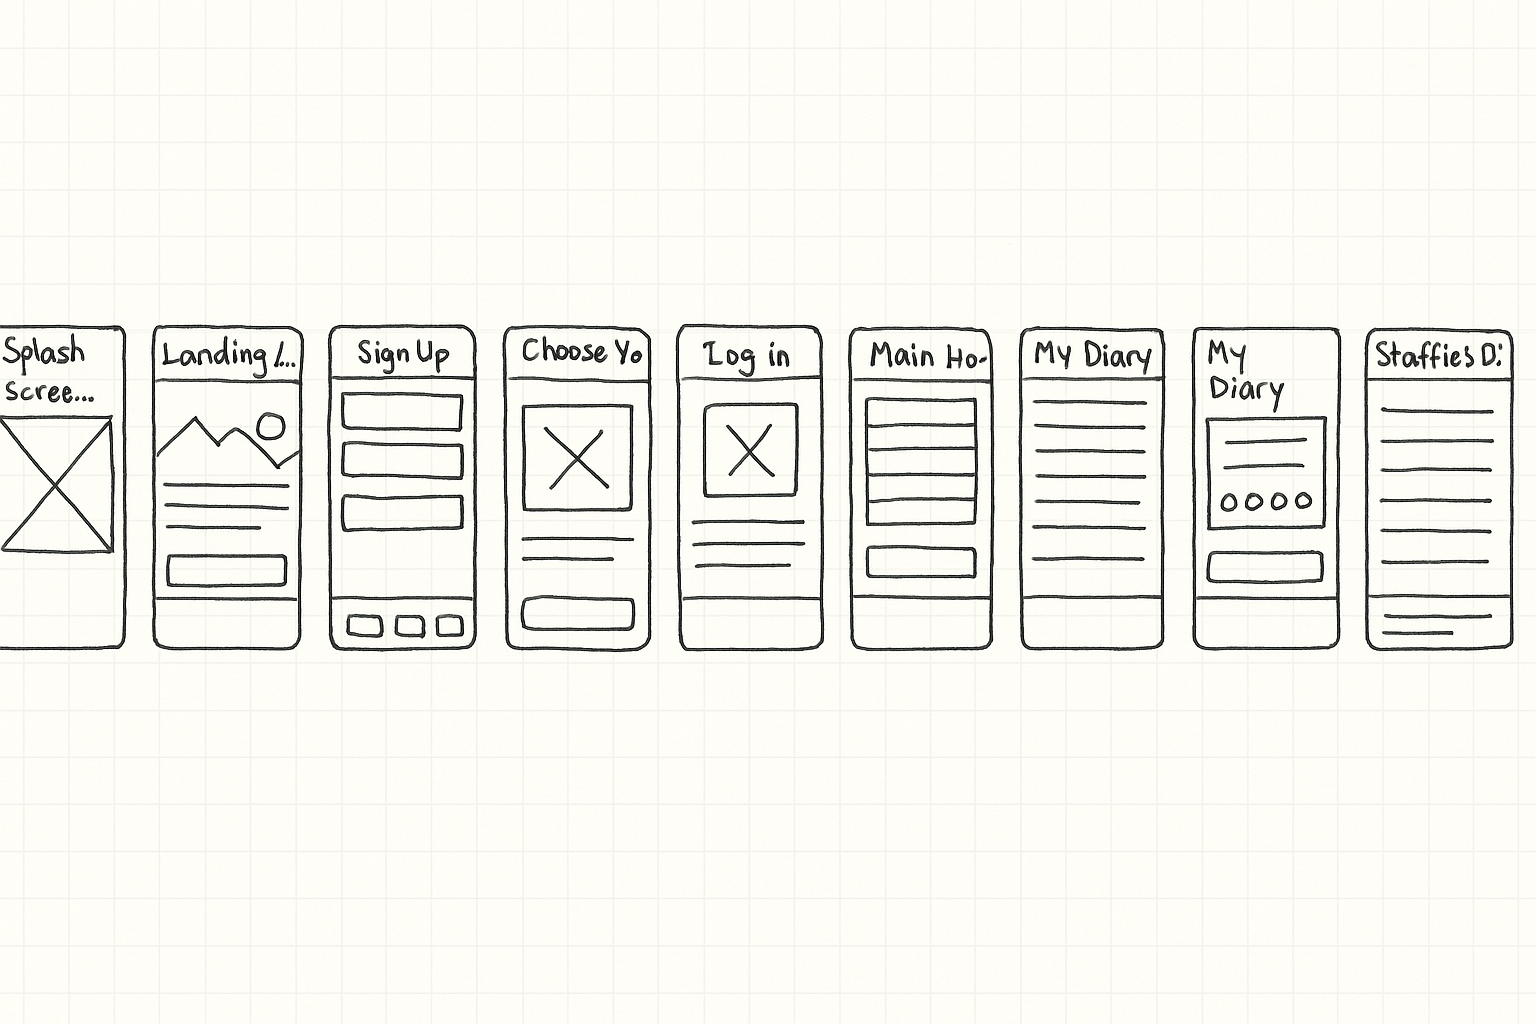 Splash
Scree...
Landing /...
Sign Up
Choose Yo
Log in
Main Ho-
My Diary
My
Diary
Staffies Di